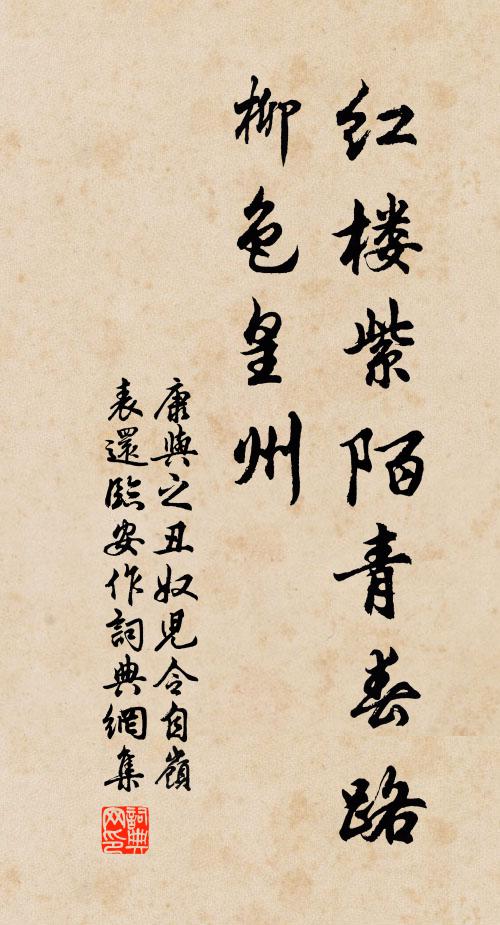 红楼紫陌青春路
柳色皇州
康與之丑奴児令自嶺
表還臨安作詞典網集
詞典网印